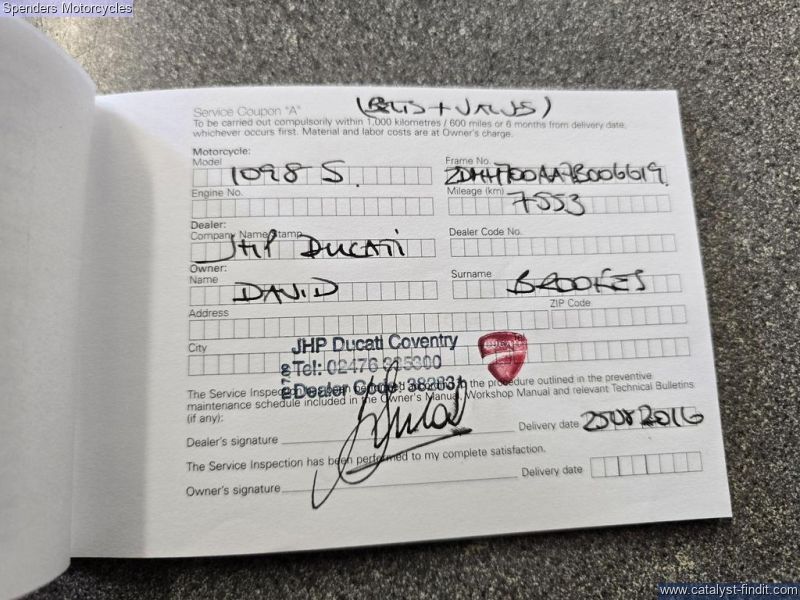 Spenders Motorcycles
Service Coupon "A" (BELTS + VALVES)
To be carried out compulsorily within 1,000 kilometres / 600 miles or 6 months from delivery date,
whichever occurs first. Material and labor costs are at Owner's charge.
Motorcycle:
Model 1098 S. Frame No. ZDMH700AA7B006619.
Engine No. Mileage (km) 7553
Dealer:
Company Name/Stamp JHP DUCATI Dealer Code No.
Owner:
Name DAVID Surname BROOKES
Address ZIP Code
City
JHP Ducati Coventry
Tel: 02476
Dealer Code:
The Service Inspection has been the procedure outlined in the preventive
maintenance schedule included in the Owner's Manual, Workshop Manual and relevant Technical Bulletins
(if any):
Dealer's signature Delivery date 25082016
The Service Inspection has been performed to my complete satisfaction.
Owner's signature Delivery date
www.catalyst-findit.com